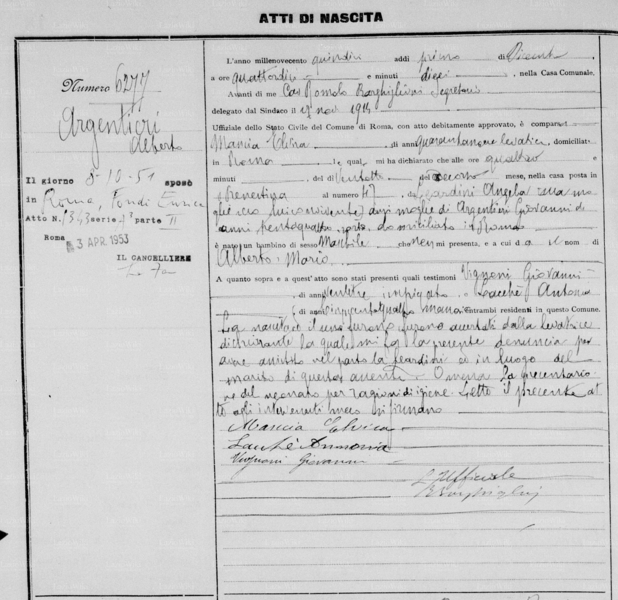 ATTI DI NASCITA
Numero 6277
Argentieri
Alberto
Il giorno 8-10-51 sposò
in Roma, Fondi Enrica
Atto N. 1343 serie parte II
Roma 3 APR. 1953
IL CANCELLIERE
L'anno millenovecento quindici addì primo di Dicembre
a ore quattordici e minuti dieci, nella Casa Comunale.
Avanti di me Cav Romolo Borghigiani Segretario
delegato dal Sindaco il nov 1914
Ufficiale dello Stato Civile del Comune di Roma, con atto debitamente approvato, è compars
Mancia Elvira di anni quarantanove levatrice, domiciliat
in Roma la qual mi ha dichiarato che alle ore quattro e
minuti del dì ventotto mese, nella casa posta in
al numero 47 da Leardini Angela sua mo
glie moglie di Argentieri Giovanni di
anni trentaquattro, domiciliato in Roma
è nato un bambino di sesso Maschile che non mi presenta, e a cui dà il nom di
Alberto Mario
A quanto sopra e a quest'atto sono stati presenti quali testimoni Vignoni Giovanni
, di anni ventitre impiegato e Antonio
, di anni entrambi residenti in questo Comune.
La nascita furono accertati dalla levatrice
dichiarante la quale mi fa la presente denuncia per
avere assistito nel parto la Leardini ed in luogo del
marito di questa assente. Omessa la presentazio
ne del neonato per ragioni di igiene. Letto il presente at
to agli intervenuti meco si firmano
Mancia Elvira
Vignoni Giovanni
L'Ufficiale